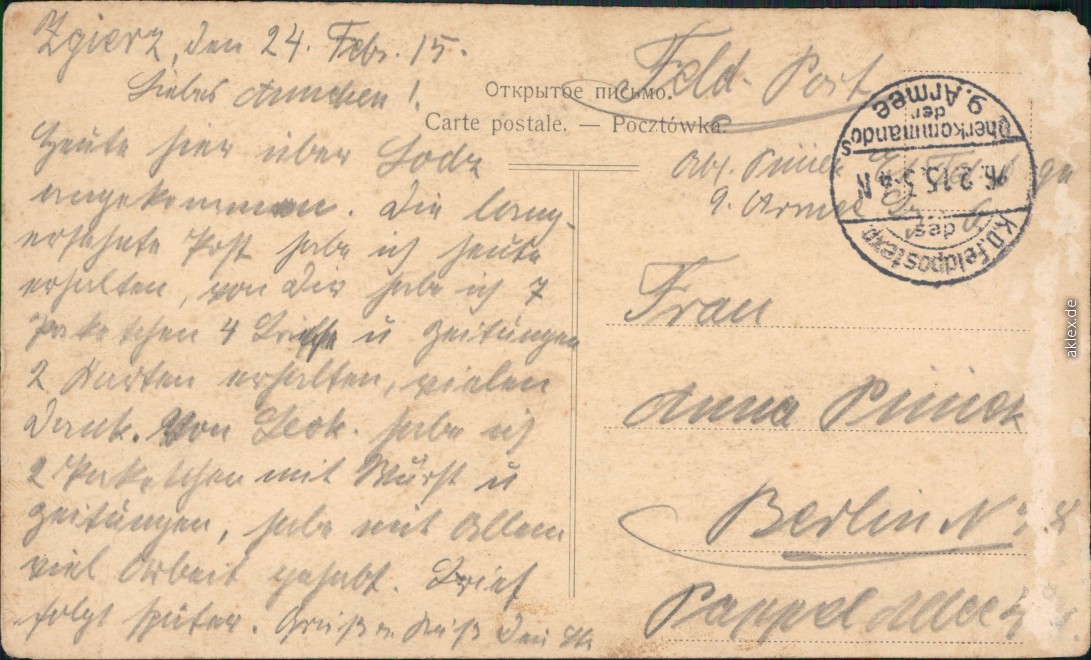 Zgierz, den 24. Febr. 15.
Liebes Annchen!
Heute hier über Lodz
angekommen. Die lang-
ersehnte Post habe ich heute
erhalten, von Dir habe ich 7
Paketchen 4 Briefe u Zeitungen
2 Karten erhalten, vielen
Dank. Von habe ich
2 Paketchen mit Wurst u
Zeitungen, habe mit Allem
viel Arbeit gehabt. Brief
folgt später. Gruß u Kuß Dein
Открытое письмо.
Carte postale. — Pocztówka.
Feld-Post
Abs.
9. Armee
Oberkommandos
der
9. Armee
26.2.15. 3-4 N
K.D. Feldpostexp.
des
Frau
Anna
Berlin N
Pappel Allee
aklex.de